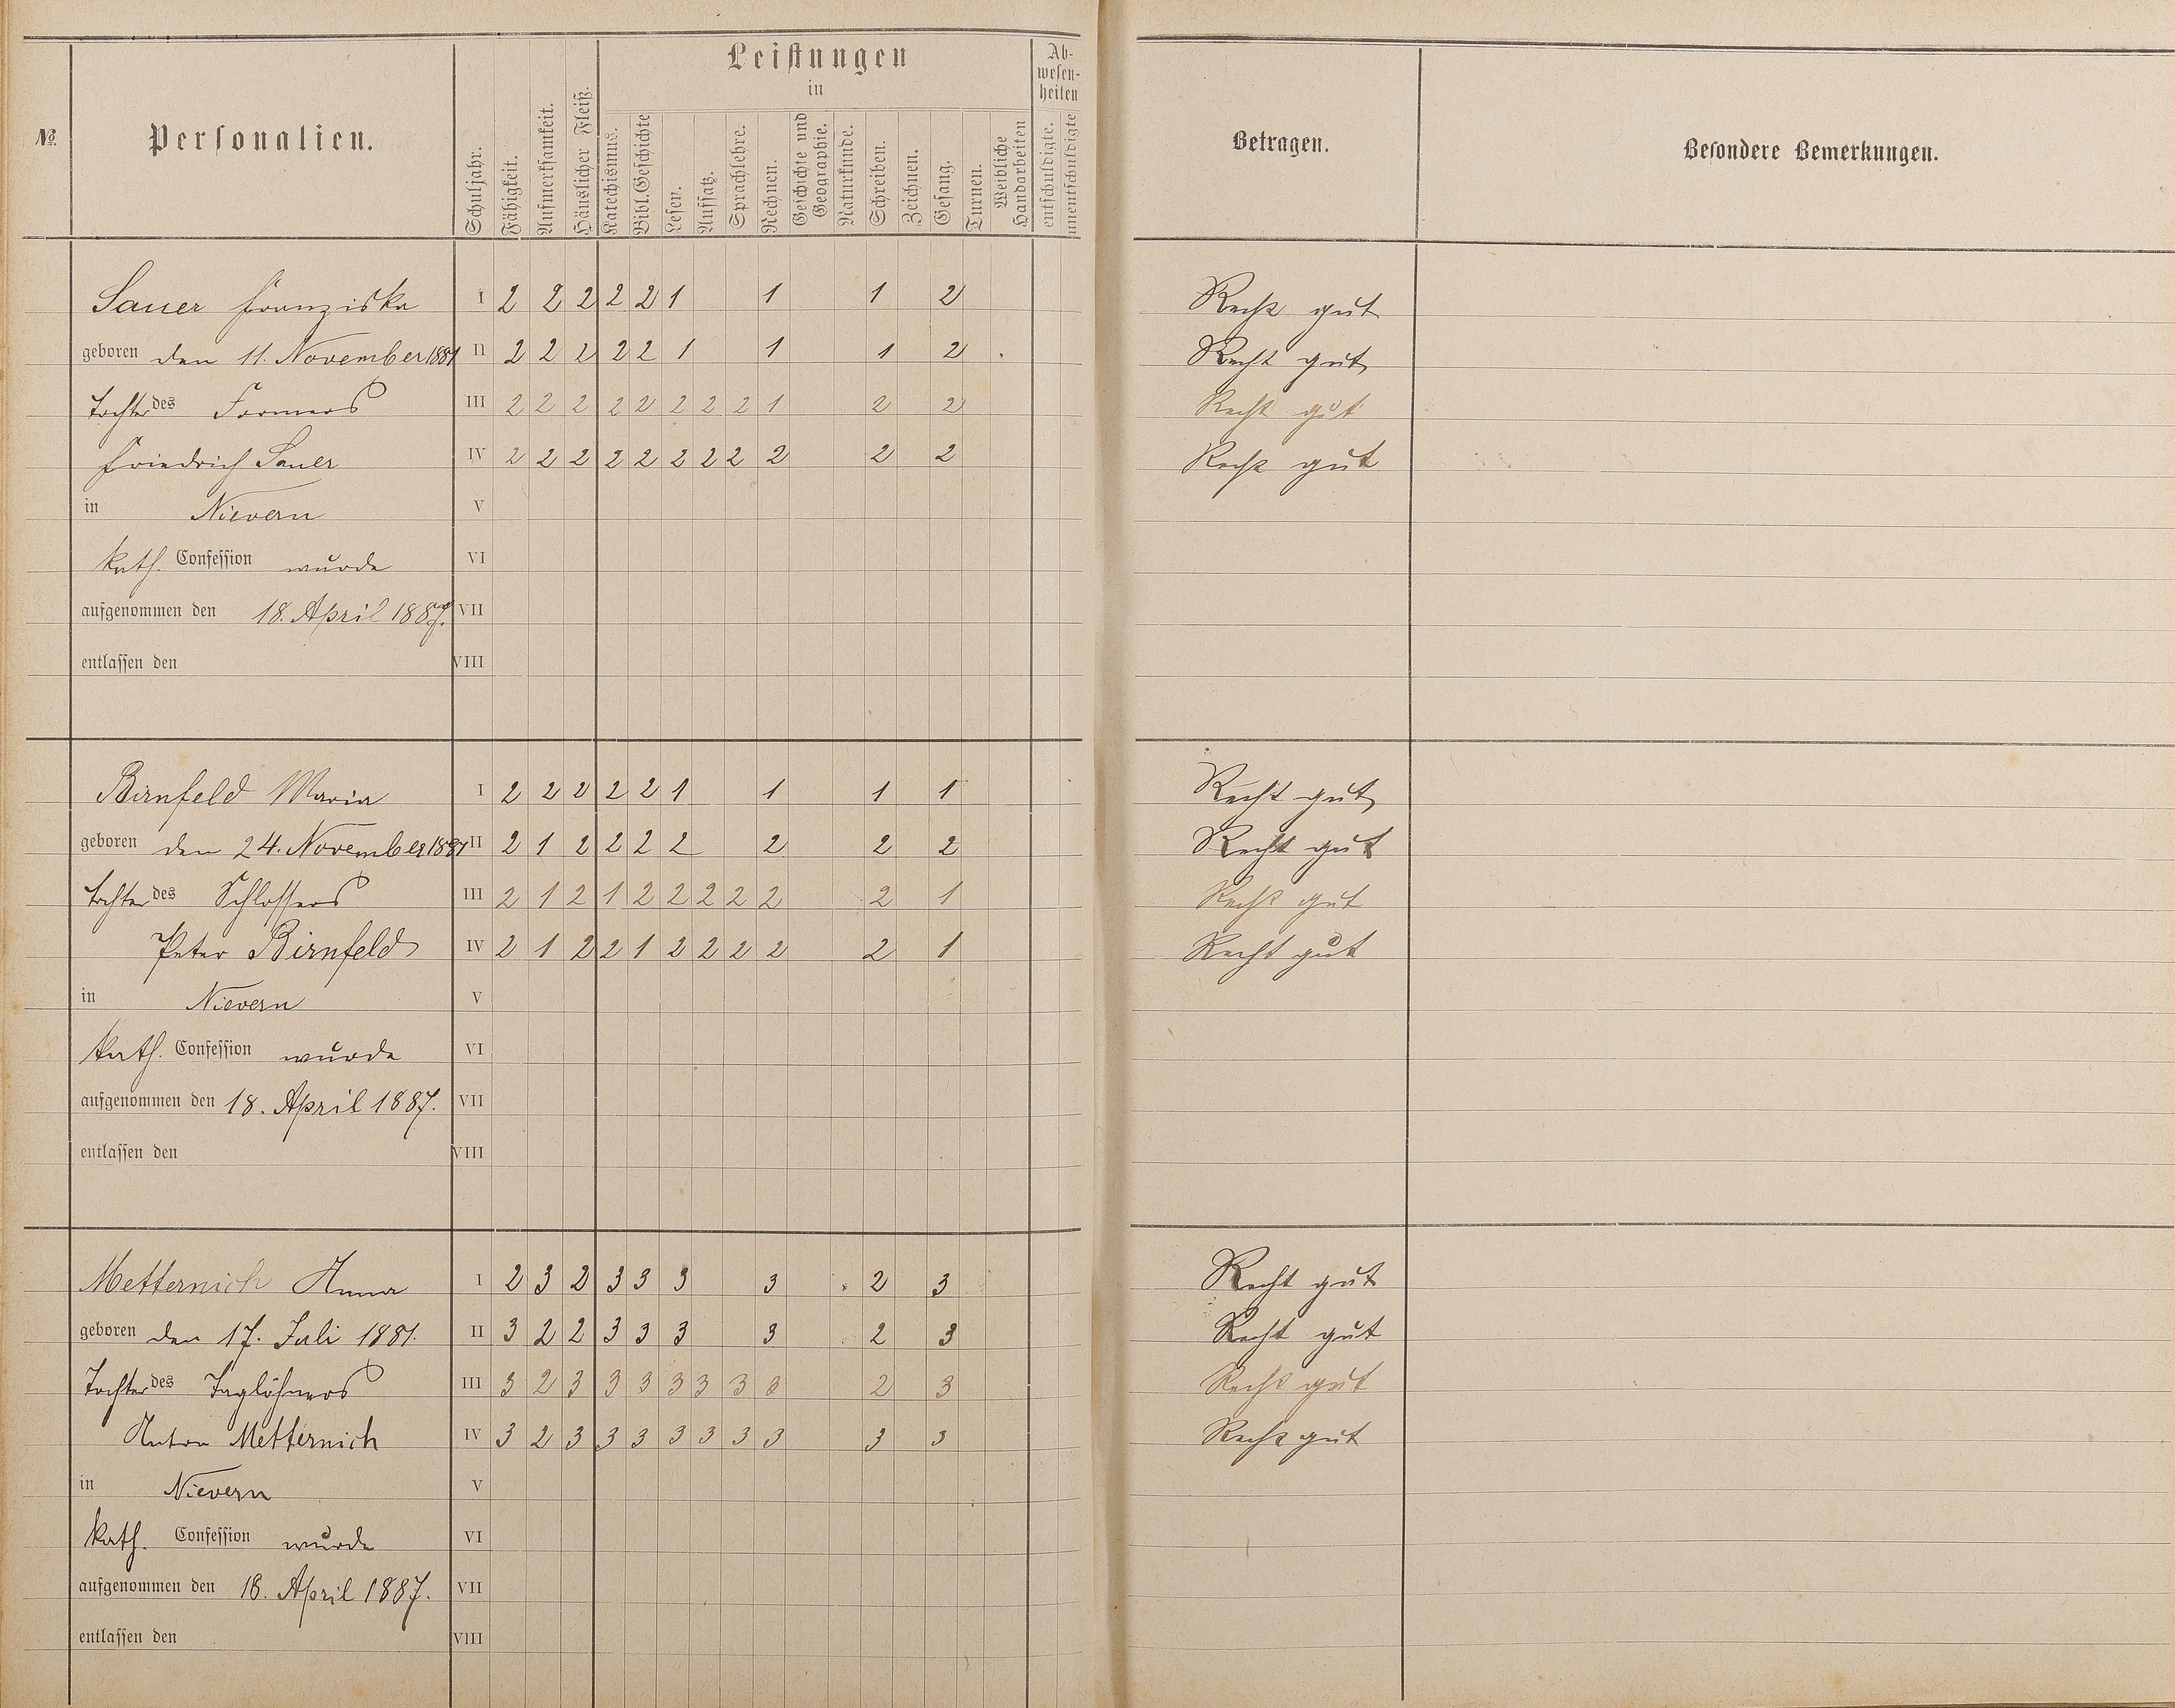 Leistungen
in
Ab-
wesen-
heiten
№
Personalien.
Schuljahr.
Fähigkeit.
Aufmerksamkeit.
Häuslicher Fleiß.
Katechismus.
Bibl. Geschichte
Lesen.
Aufsatz.
Sprachlehre.
Rechnen.
Geschichte und
Geographie.
Naturkunde.
Schreiben.
Zeichnen.
Gesang.
Turnen.
Weibliche
Handarbeiten
entschuldigte.
unentschuldigte
Betragen.
Besondere Bemerkungen.
Sauer Franziska I 2 2 2 2 2 1 1 1 2 Recht gut
geboren den 11. November 1881 II 2 2 2 2 2 1 1 1 2 Recht gut
Tochter des Formers III 2 2 2 2 2 2 2 2 1 2 2 Recht gut
Friedrich Sauer IV 2 2 2 2 2 2 2 2 2 2 2 Recht gut
in Nievern V
kath. Confession wurde VI
aufgenommen den 18. April 1887. VII
entlassen den VIII
Birnfeld Maria I 2 2 2 2 2 1 1 1 1 Recht gut
geboren den 24. November 1881 II 2 1 2 2 2 2 2 2 2 Recht gut
Tochter des Schlossers III 2 1 2 1 2 2 2 2 2 2 1 Recht gut
Peter Birnfeld IV 2 1 2 2 1 2 2 2 2 2 1 Recht gut
in Nievern V
kath. Confession wurde VI
aufgenommen den 18. April 1887. VII
entlassen den VIII
Metternich Anna I 2 3 2 3 3 3 3 2 3 Recht gut
geboren den 17. Juli 1881. II 3 2 2 3 3 3 3 2 3 Recht gut
Tochter des Taglöhners III 3 2 3 3 3 3 3 3 3 2 3 Recht gut
Anton Metternich IV 3 2 3 3 3 3 3 3 3 3 3 Recht gut
in Nievern V
kath. Confession wurde VI
aufgenommen den 18. April 1887. VII
entlassen den VIII